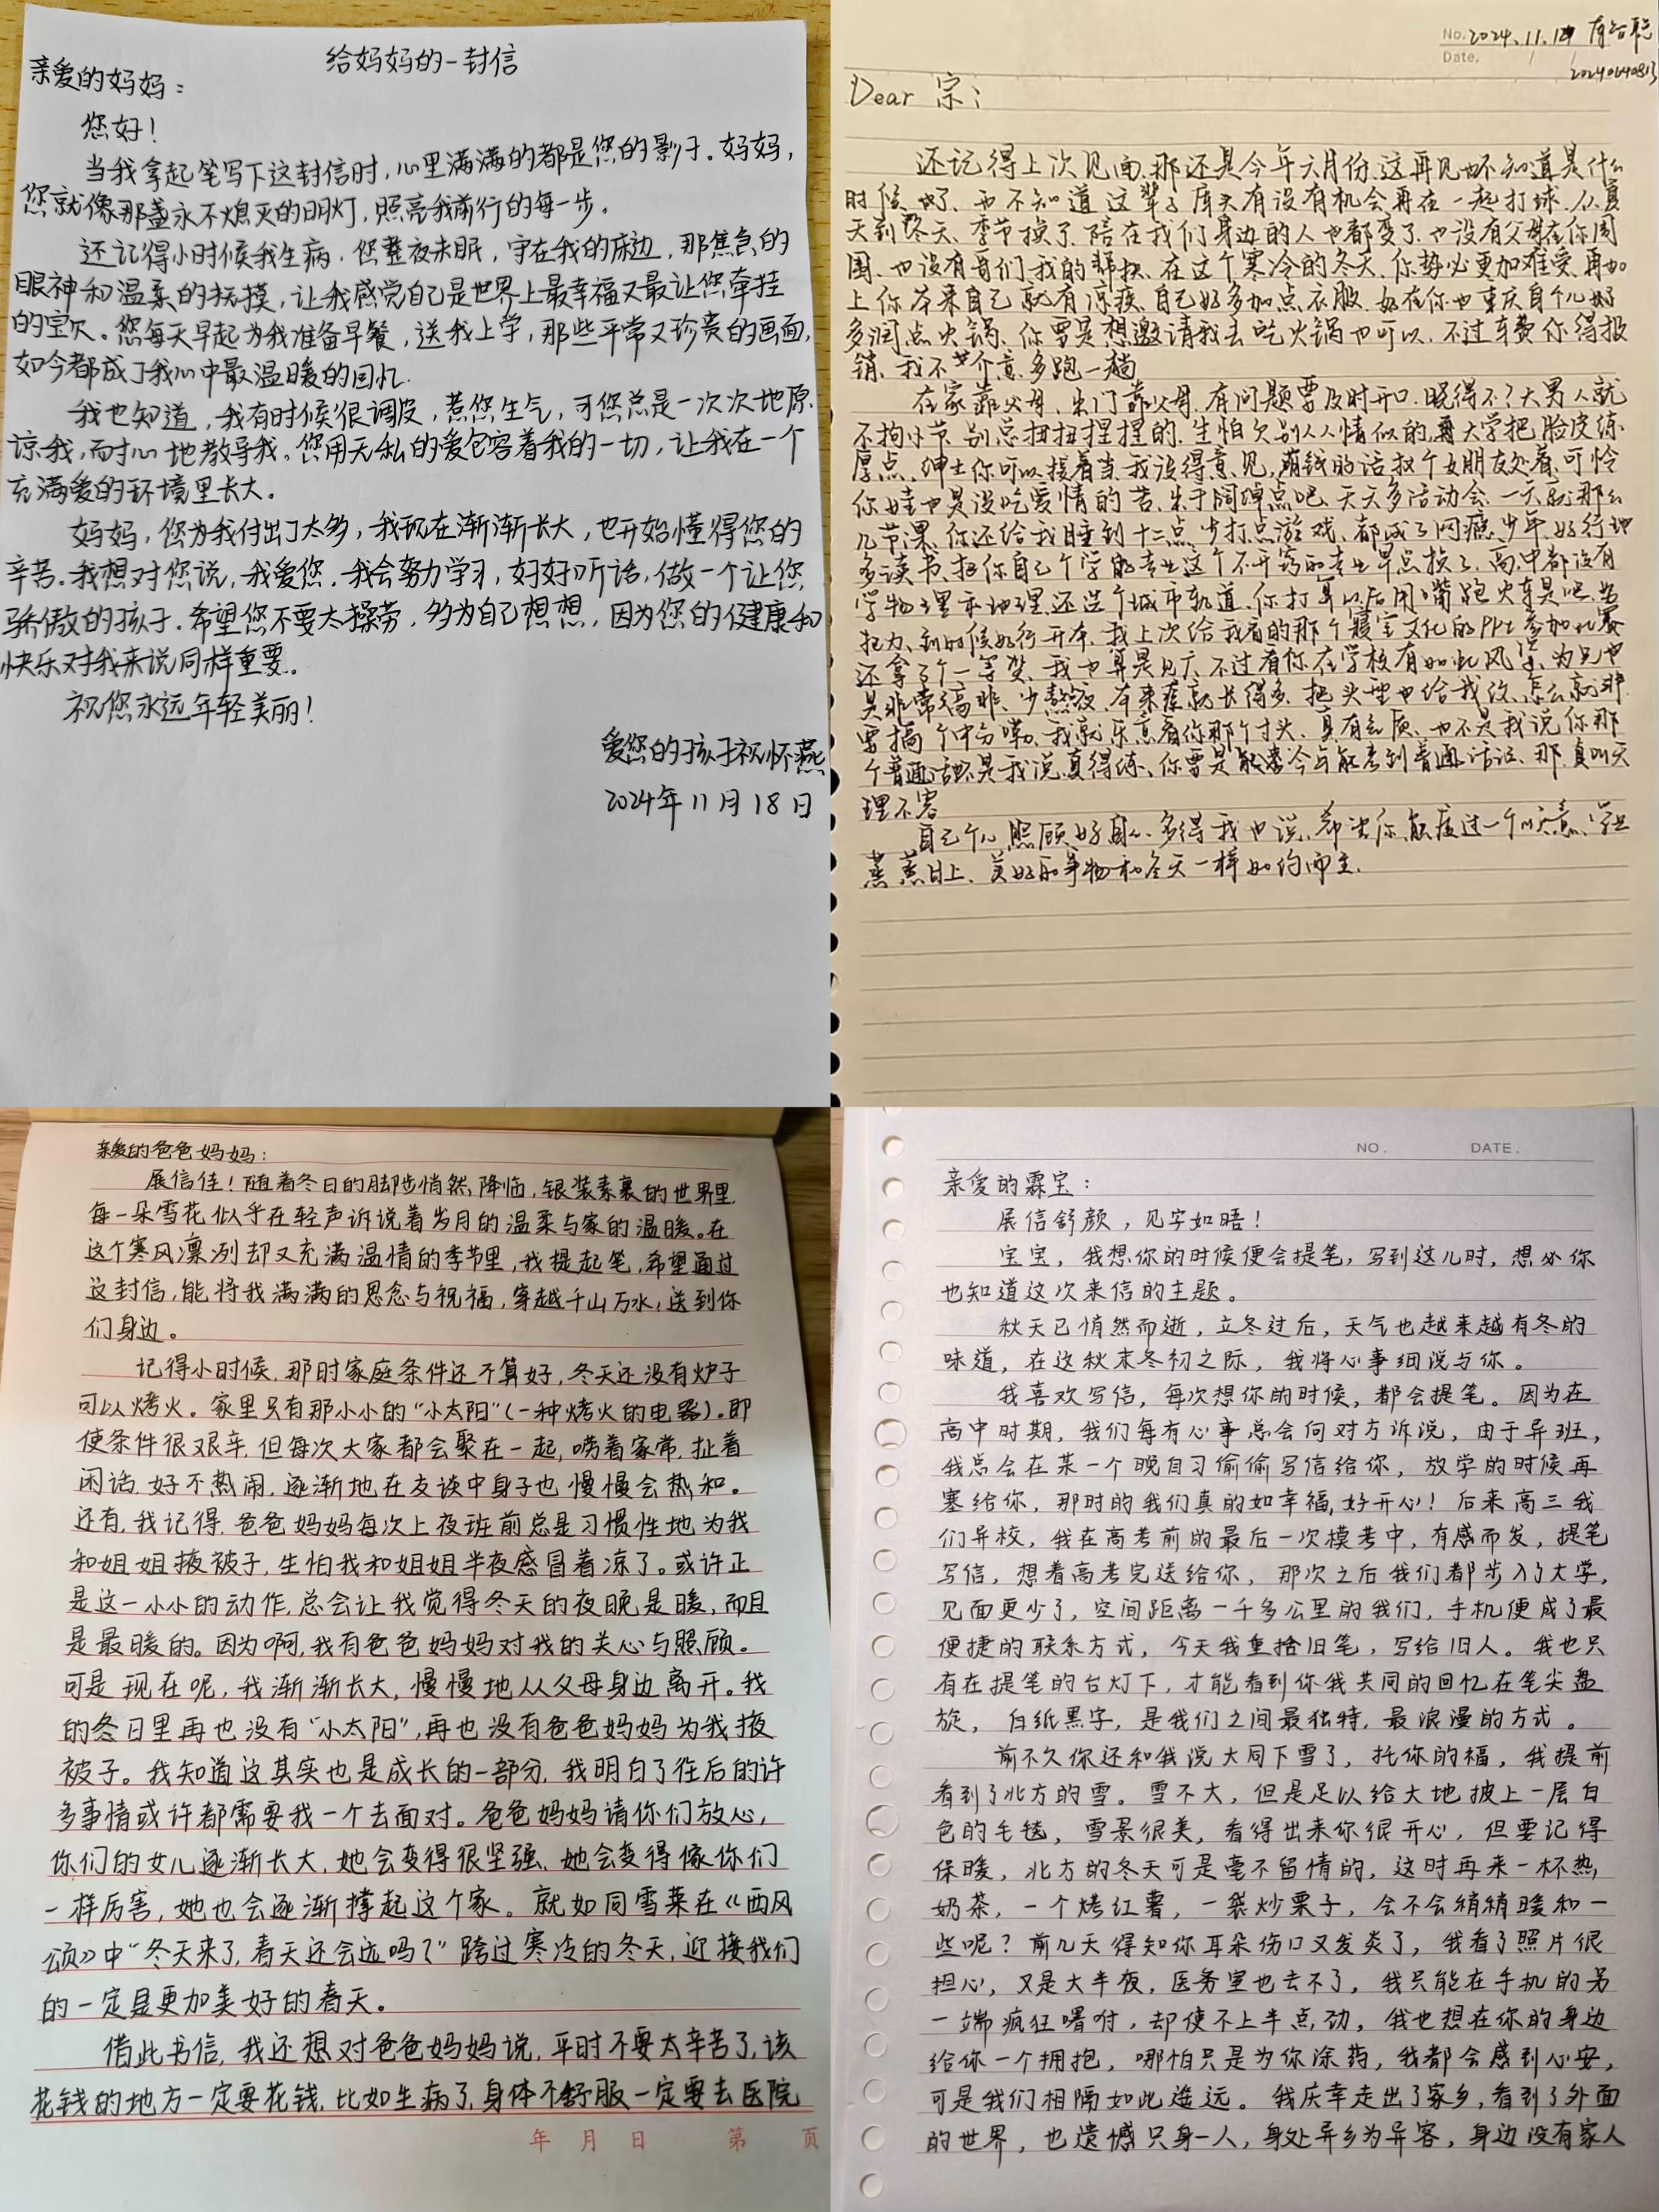 给妈妈的一封信
亲爱的妈妈：
您好！
当我拿起笔写下这封信时，心里满满的都是您的影子。妈妈，
您就像那盏永不熄灭的明灯，照亮我前行的每一步。
还记得小时候我生病，您整夜未眠，守在我的床边，那焦急的
眼神和温柔的抚摸，让我感觉自己是世界上最幸福又最让您牵挂
的宝贝。您每天早起为我准备早餐，送我上学，那些平常又珍贵的画面，
如今都成了我心中最温暖的回忆.
我也知道，我有时候很调皮，惹您生气，可您总是一次次地原
谅我，耐心地教导我。您用无私的爱包容着我的一切，让我在一个
充满爱的环境里长大。
妈妈，您为我付出了太多，我现在渐渐长大，也开始懂得您的
辛苦.我想对您说，我爱您.我会努力学习，好好听话，做一个让您
骄傲的孩子.希望您不要太操劳，多为自己想想，因为您的健康和
快乐对我来说同样重要。
祝您永远年轻美丽！
爱您的孩子祝怀燕
2024年11月18日
No. 2024.11.14
Date.
Dear 宗：
还记得上次见面、那还是今年六月份、这再见也不知道是什么
时候了、也不知道这辈子有没有机会再在一起打球、从夏
天到冬天、季节换了、陪在我们身边的人也都变了、也没有父母在你周
围、也没有哥们我的帮扶、在这个寒冷的冬天、你势必更加难受、再加
上你本来自己就有凉疾、自己好多加点衣服、好在你也重庆自个儿好
多涮点火锅、你要是想邀请我去吃火锅也可以、不过车费你得报
销、我不介意多跑一趟
在家靠父母、出门靠父母、有问题要及时开口、晓得不？大男人就
不拘小节、别总扭扭捏捏的、生怕欠别人人情似的、大学把脸皮练
厚点、绅士你可以接着当、我没得意见，有钱的话找个女朋友处着、可怜
你娃也是没吃爱情的苦、天天多活动会、一天就那么
几节课、你还给我睡到十二点、少打点游戏、都成了网瘾少年、好行地
多读书、把你自己个学的专业这个不开窍的专业早点换了、高中都没有
学物理和地理、还选个城市轨道、你打算以后用嘴跑火车是吧、
上次给我看的那个寝室文化的PPT参加比赛
还拿了个一等奖、我也算是见了、不过有你在学校有如此风采、为兄也
是非常高兴、少熬夜、本来痘就长得多、把头型也给我改、怎么就非
要搞个中分嘞、我就乐意看你那个寸头、真有气质、也不是我说你那
个普通话是我说真得练、你要是今年能考到普通话证、那真叫天
理不容
自己个儿照顾好自己、多得我也说、希望你能度过一个
蒸蒸日上、美好的事物和冬天一样如约而至.
亲爱的爸爸妈妈：
展信佳！随着冬日的脚步悄然降临，银装素裹的世界里，
每一朵雪花似乎在轻声诉说着岁月的温柔与家的温暖。在
这个寒风凛冽却又充满温情的季节里，我提起笔，希望通过
这封信，能将我满满的思念与祝福，穿越千山万水，送到你
们身边。
记得小时候，那时家庭条件还不算好，冬天还没有炉子
可以烤火。家里只有那小小的“小太阳”（一种烤火的电器）。即
使条件很艰辛，但每次大家都会聚在一起，唠着家常，扯着
闲话，好不热闹，逐渐地在友谈中身子也慢慢会热和。
还有，我记得，爸爸妈妈每次上夜班前总是习惯性地为我
和姐姐掖被子，生怕我和姐姐半夜感冒着凉了。或许正
是这一小小的动作，总会让我觉得冬天的夜晚是暖，而且
是最暖的。因为啊，我有爸爸妈妈对我的关心与照顾。
可是现在呢，我渐渐长大，慢慢地从父母身边离开。我
的冬日里再也没有“小太阳”，再也没有爸爸妈妈为我掖
被子。我知道这其实也是成长的一部分，我明白了往后的许
多事情或许都需要我一个去面对。爸爸妈妈请你们放心，
你们的女儿逐渐长大，她会变得很坚强、她会变得像你们
一样厉害，她也会逐渐撑起这个家。就如同雪莱在《西风
颂》中“冬天来了，春天还会远吗？”跨过寒冷的冬天，迎接我们
的一定是更加美好的春天。
借此书信，我还想对爸爸妈妈说，平时不要太辛苦了，该
花钱的地方一定要花钱，比如生病了，身体不舒服一定要去医院
年 月 日 第 页
NO. DATE.
亲爱的霖宝：
展信舒颜，见字如晤！
宝宝，我想你的时候便会提笔，写到这儿时，想必你
也知道这次来信的主题。
秋天已悄然而逝，立冬过后，天气也越来越有冬的
味道，在这秋末冬初之际，我将心事细说与你。
我喜欢写信，每次想你的时候，都会提笔。因为在
高中时期，我们每有心事总会向对方诉说，由于异班，
我总会在某一个晚自习偷偷写信给你，放学的时候再
塞给你，那时的我们真的如幸福，好开心！后来高三我
们异校，我在高考前的最后一次模考中，有感而发，提笔
写信，想着高考完送给你，那次之后我们都步入了大学，
见面更少了，空间距离一千多公里的我们，手机便成了最
便捷的联系方式，今天我重拾旧笔，写给旧人。我也只
有在提笔的台灯下，才能看到你我共同的回忆在笔尖盘
旋，白纸黑字，是我们之间最独特，最浪漫的方式。
前不久你还和我说大同下雪了，托你的福，我提前
看到了北方的雪。雪不大，但是足以给大地披上一层白
色的毛毯，雪景很美，看得出来你很开心，但要记得
保暖，北方的冬天可是毫不留情的，这时再来一杯热
奶茶，一个烤红薯，一袋炒栗子，会不会稍稍暖和一
些呢？前几天得知你耳朵伤口又发炎了，我看了照片很
担心，又是大半夜，医务室也去不了，我只能在手机的另
一端疯狂嘱咐，却使不上半点劲，我也想在你的身边
给你一个拥抱，哪怕只是为你涂药，我都会感到心安，
可是我们相隔如此遥远。我庆幸走出了家乡，看到了外面
的世界，也遗憾只身一人，身处异乡为异客，身边没有家人